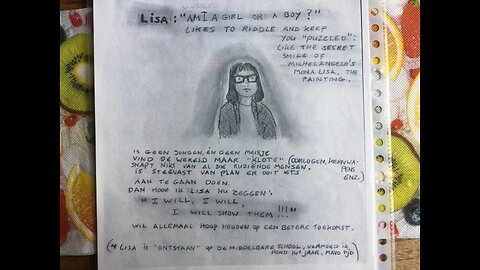 LISA: "AM I A GIRL OR A BOY?"
LIKES TO RIDDLE AND KEEP
YOU "PUZZLED":
LIKE THE SECRET
SMILE OF
MICHELANGELO'S
MONA LISA, THE
PAINTING.
IS GEEN JONGEN, EN GEEN MEISJE
VIND DE WERELD MAAR "KLOTE" (OORLOGEN, KERNWA-
PENS
SNAPT NIKS VAN AL DIE RUZIËNDE MENSEN. ENZ.)
IS STEGVAST VAN PLAN ER OOIT IETS
AAN TE GAAN DOEN.
DAN HOOR IK LISA NU ZEGGEN:
"I WILL, I WILL,
I WILL SHOW THEM...!!!"
WIL ALLEMAAL HOOP HOUDEN OP EEN BETERE TOEKOMST.
(* LISA IS "ONTSTAAN" OP DE MIDDELBARE SCHOOL, VERMOED IK,
ROND 14e JAAR, MAVO TIJD